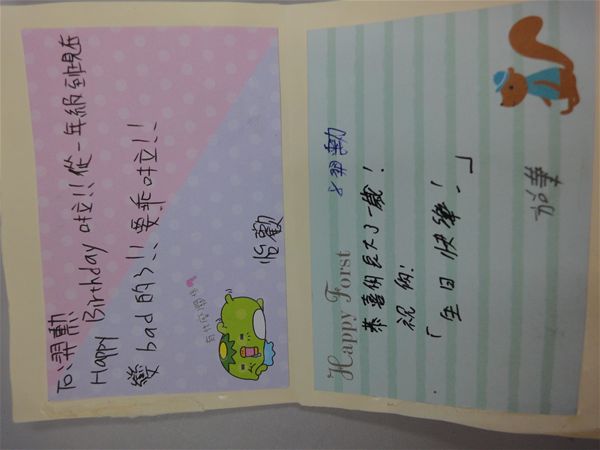 To:羿勳
Happy Birthday 啦!!從一年級到現在
變 bad 的ㄋ!!要乖啦!!
怡歡
Happy Forst
羿勳
恭喜你長大了一歲!
祝你:
「生日快樂!」